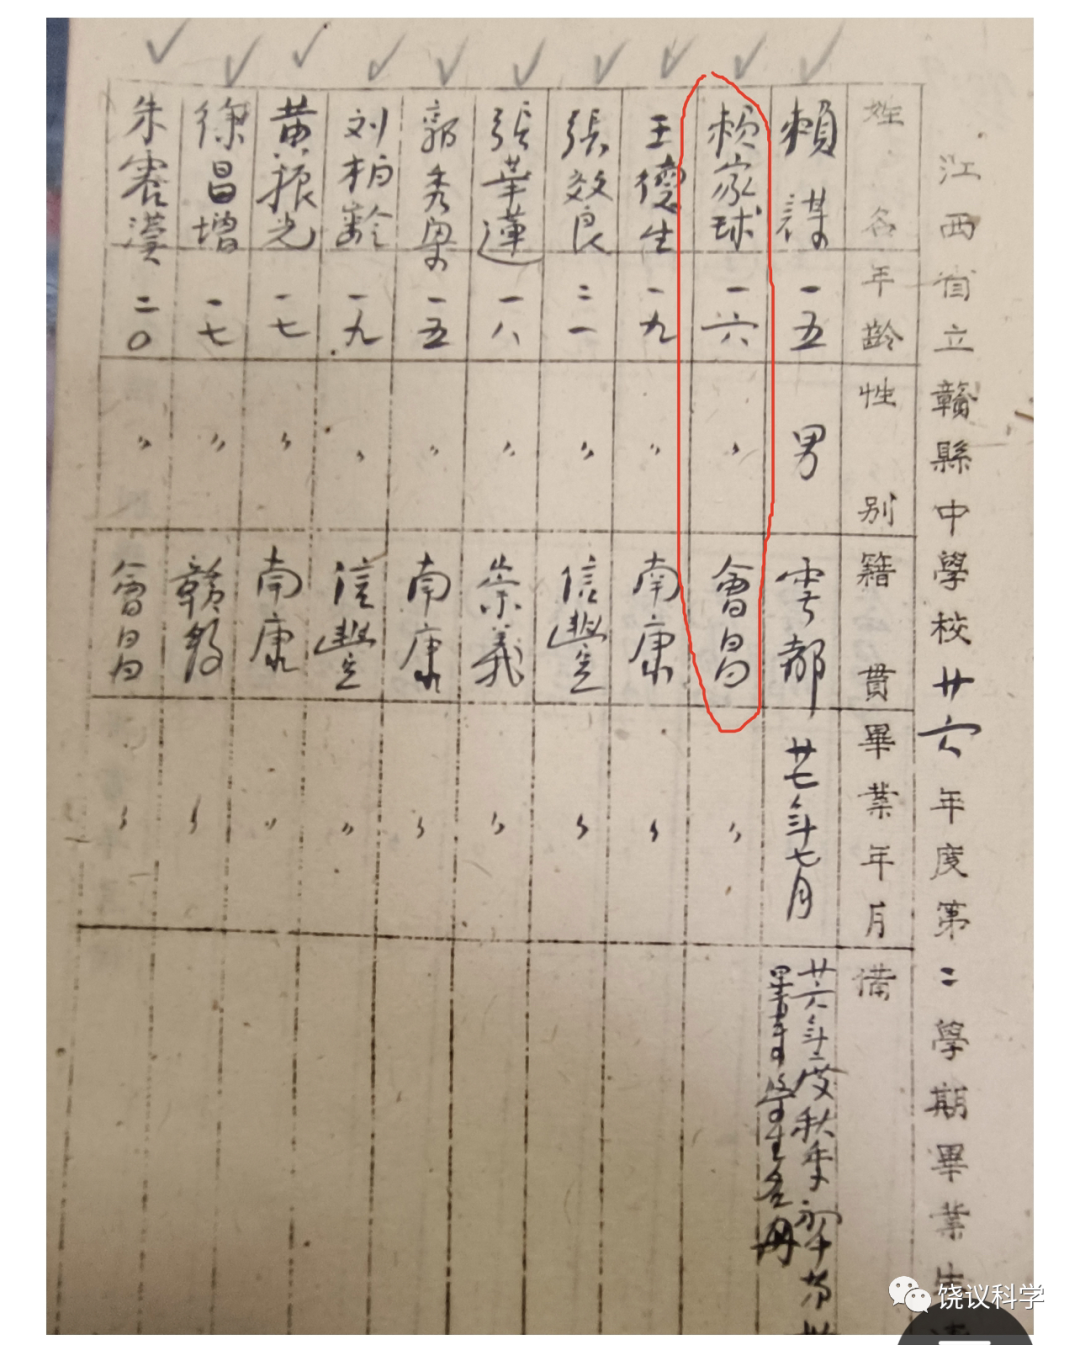 江西省立贛縣中學校廿六年度第二學期畢業生
姓名 年齡 性別 籍貫 畢業年月 備
賴謀 一五 男 雩都 廿七年七月 廿六年度秋季初中
畢業學生名冊
賴家球 一六 〃 會昌 〃
王德生 一九 〃 南康 〃
張效良 二一 〃 信豐 〃
張華蓮 一八 〃 崇義 〃
郭秀 一五 〃 南康 〃
刘柏齡 一九 〃 信豐 〃
黄振光 一七 〃 南康 〃
徐昌增 一七 〃 贛 〃
朱 二〇 〃 會昌 〃
饶议科学